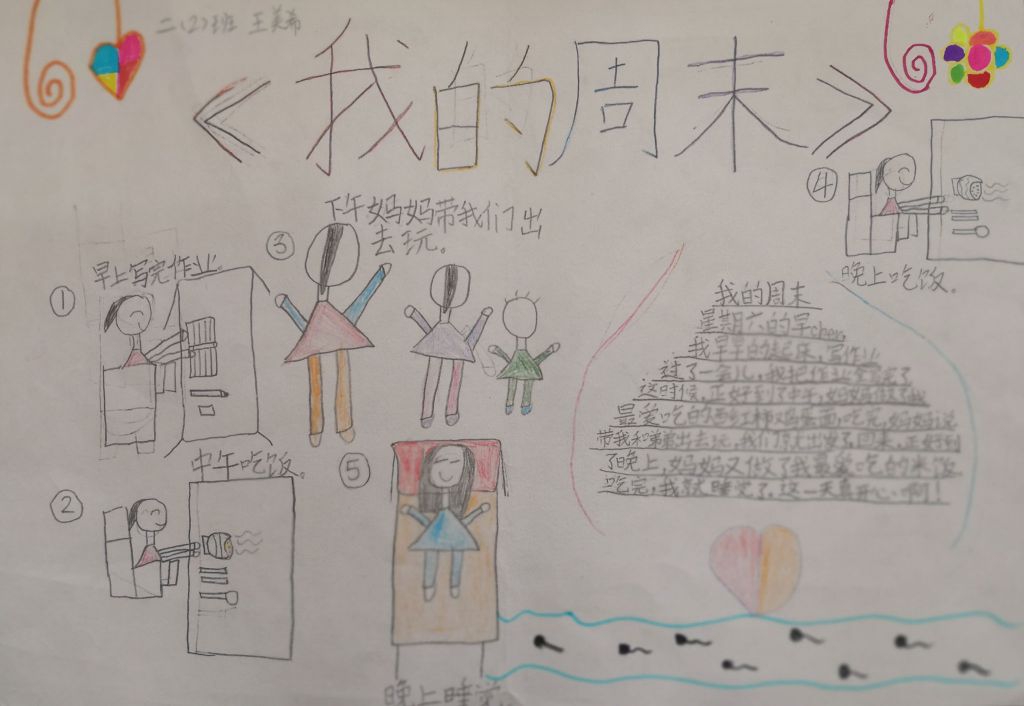 二(2)班 王美希
《我的周末》
① 早上写完作业。
② 中午吃饭。
③ 下午妈妈带我们出
去玩。
④ 晚上吃饭。
⑤ 晚上睡觉。
我的周末
星期六的早chen,
我早早的起床,写作业
过了一会儿,我把作业写完了
这时候,正好到了中午,妈妈做了我
最爱吃的西红柿鸡蛋面,吃完,妈妈说
带我和弟弟出去玩,我们就出发了,回来,正好到
了晚上,妈妈又做了我最爱吃的米饭
吃完,我就睡觉了,这一天真开心啊!